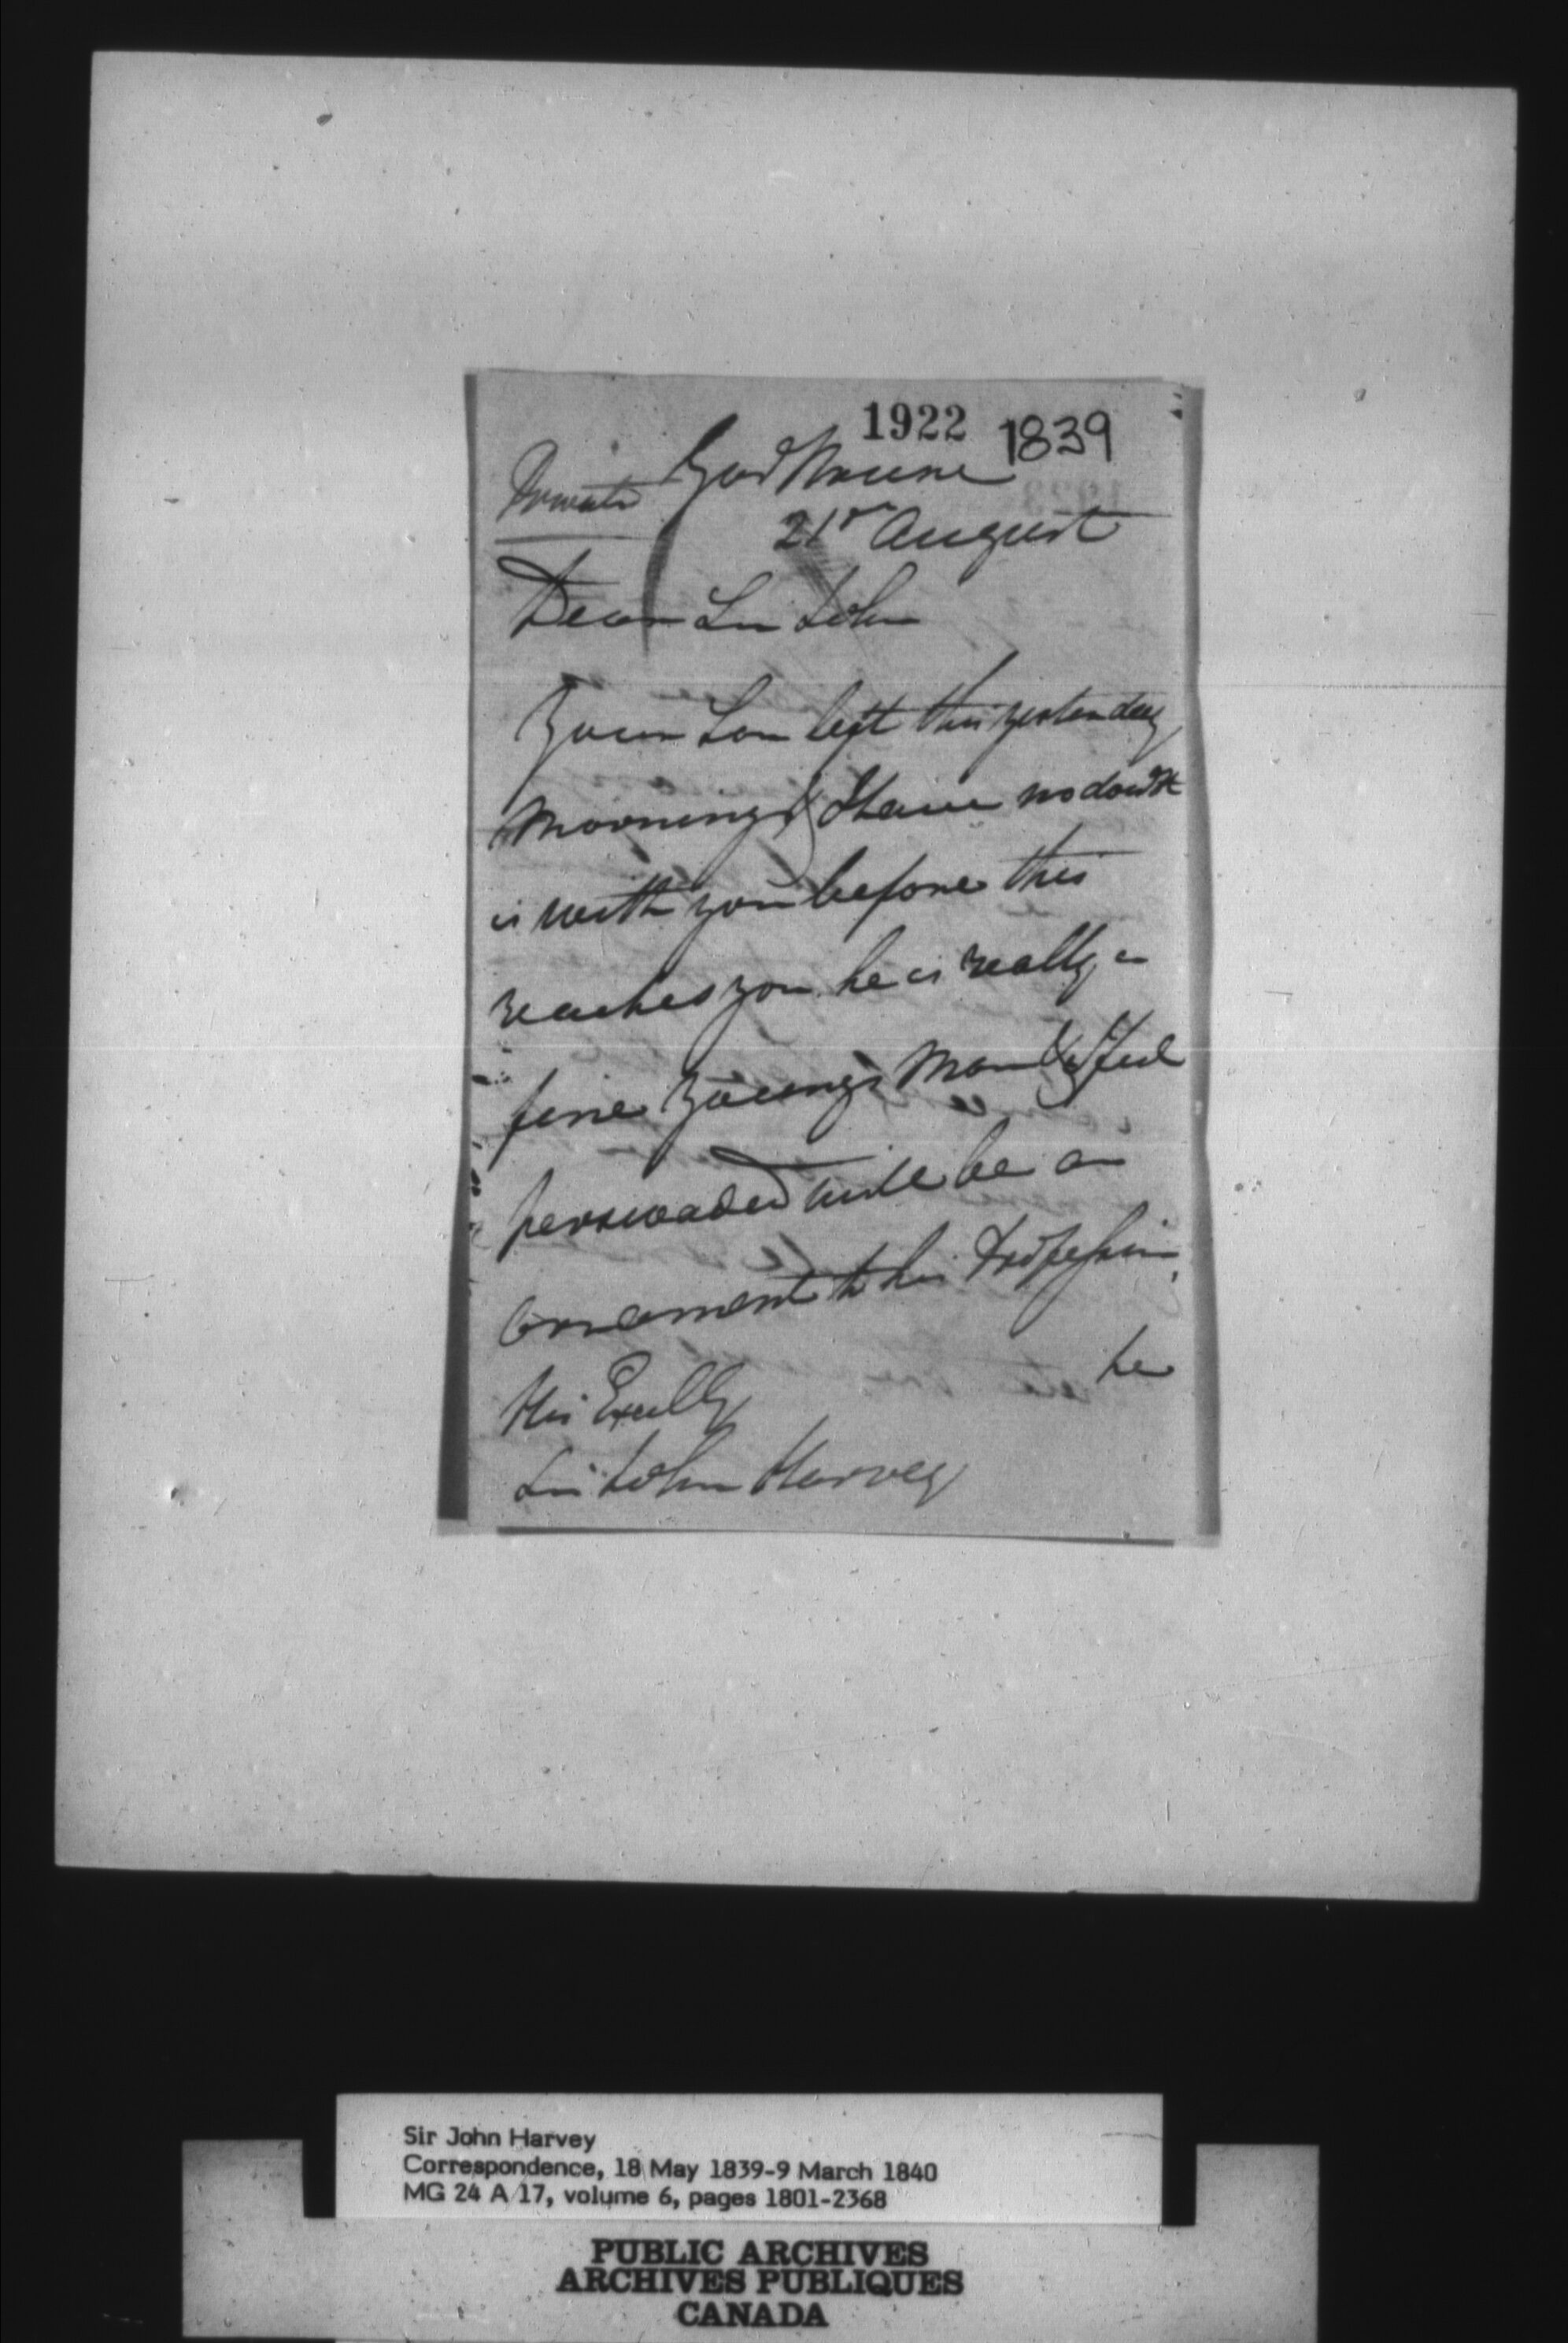 1922 1839
Private
21st August
Dear Sir John
Your Son left this yesterday
morning & I have no doubt
is with you before this
reaches you he is really a
fine Young Man & I feel
perswaded will be an
ornament to his Profession
he
His Excelly
Sir John Harvey
Sir John Harvey
Correspondence, 18 May 1839-9 March 1840
MG 24 A 17, volume 6, pages 1801-2368
PUBLIC ARCHIVES
ARCHIVES PUBLIQUES
CANADA